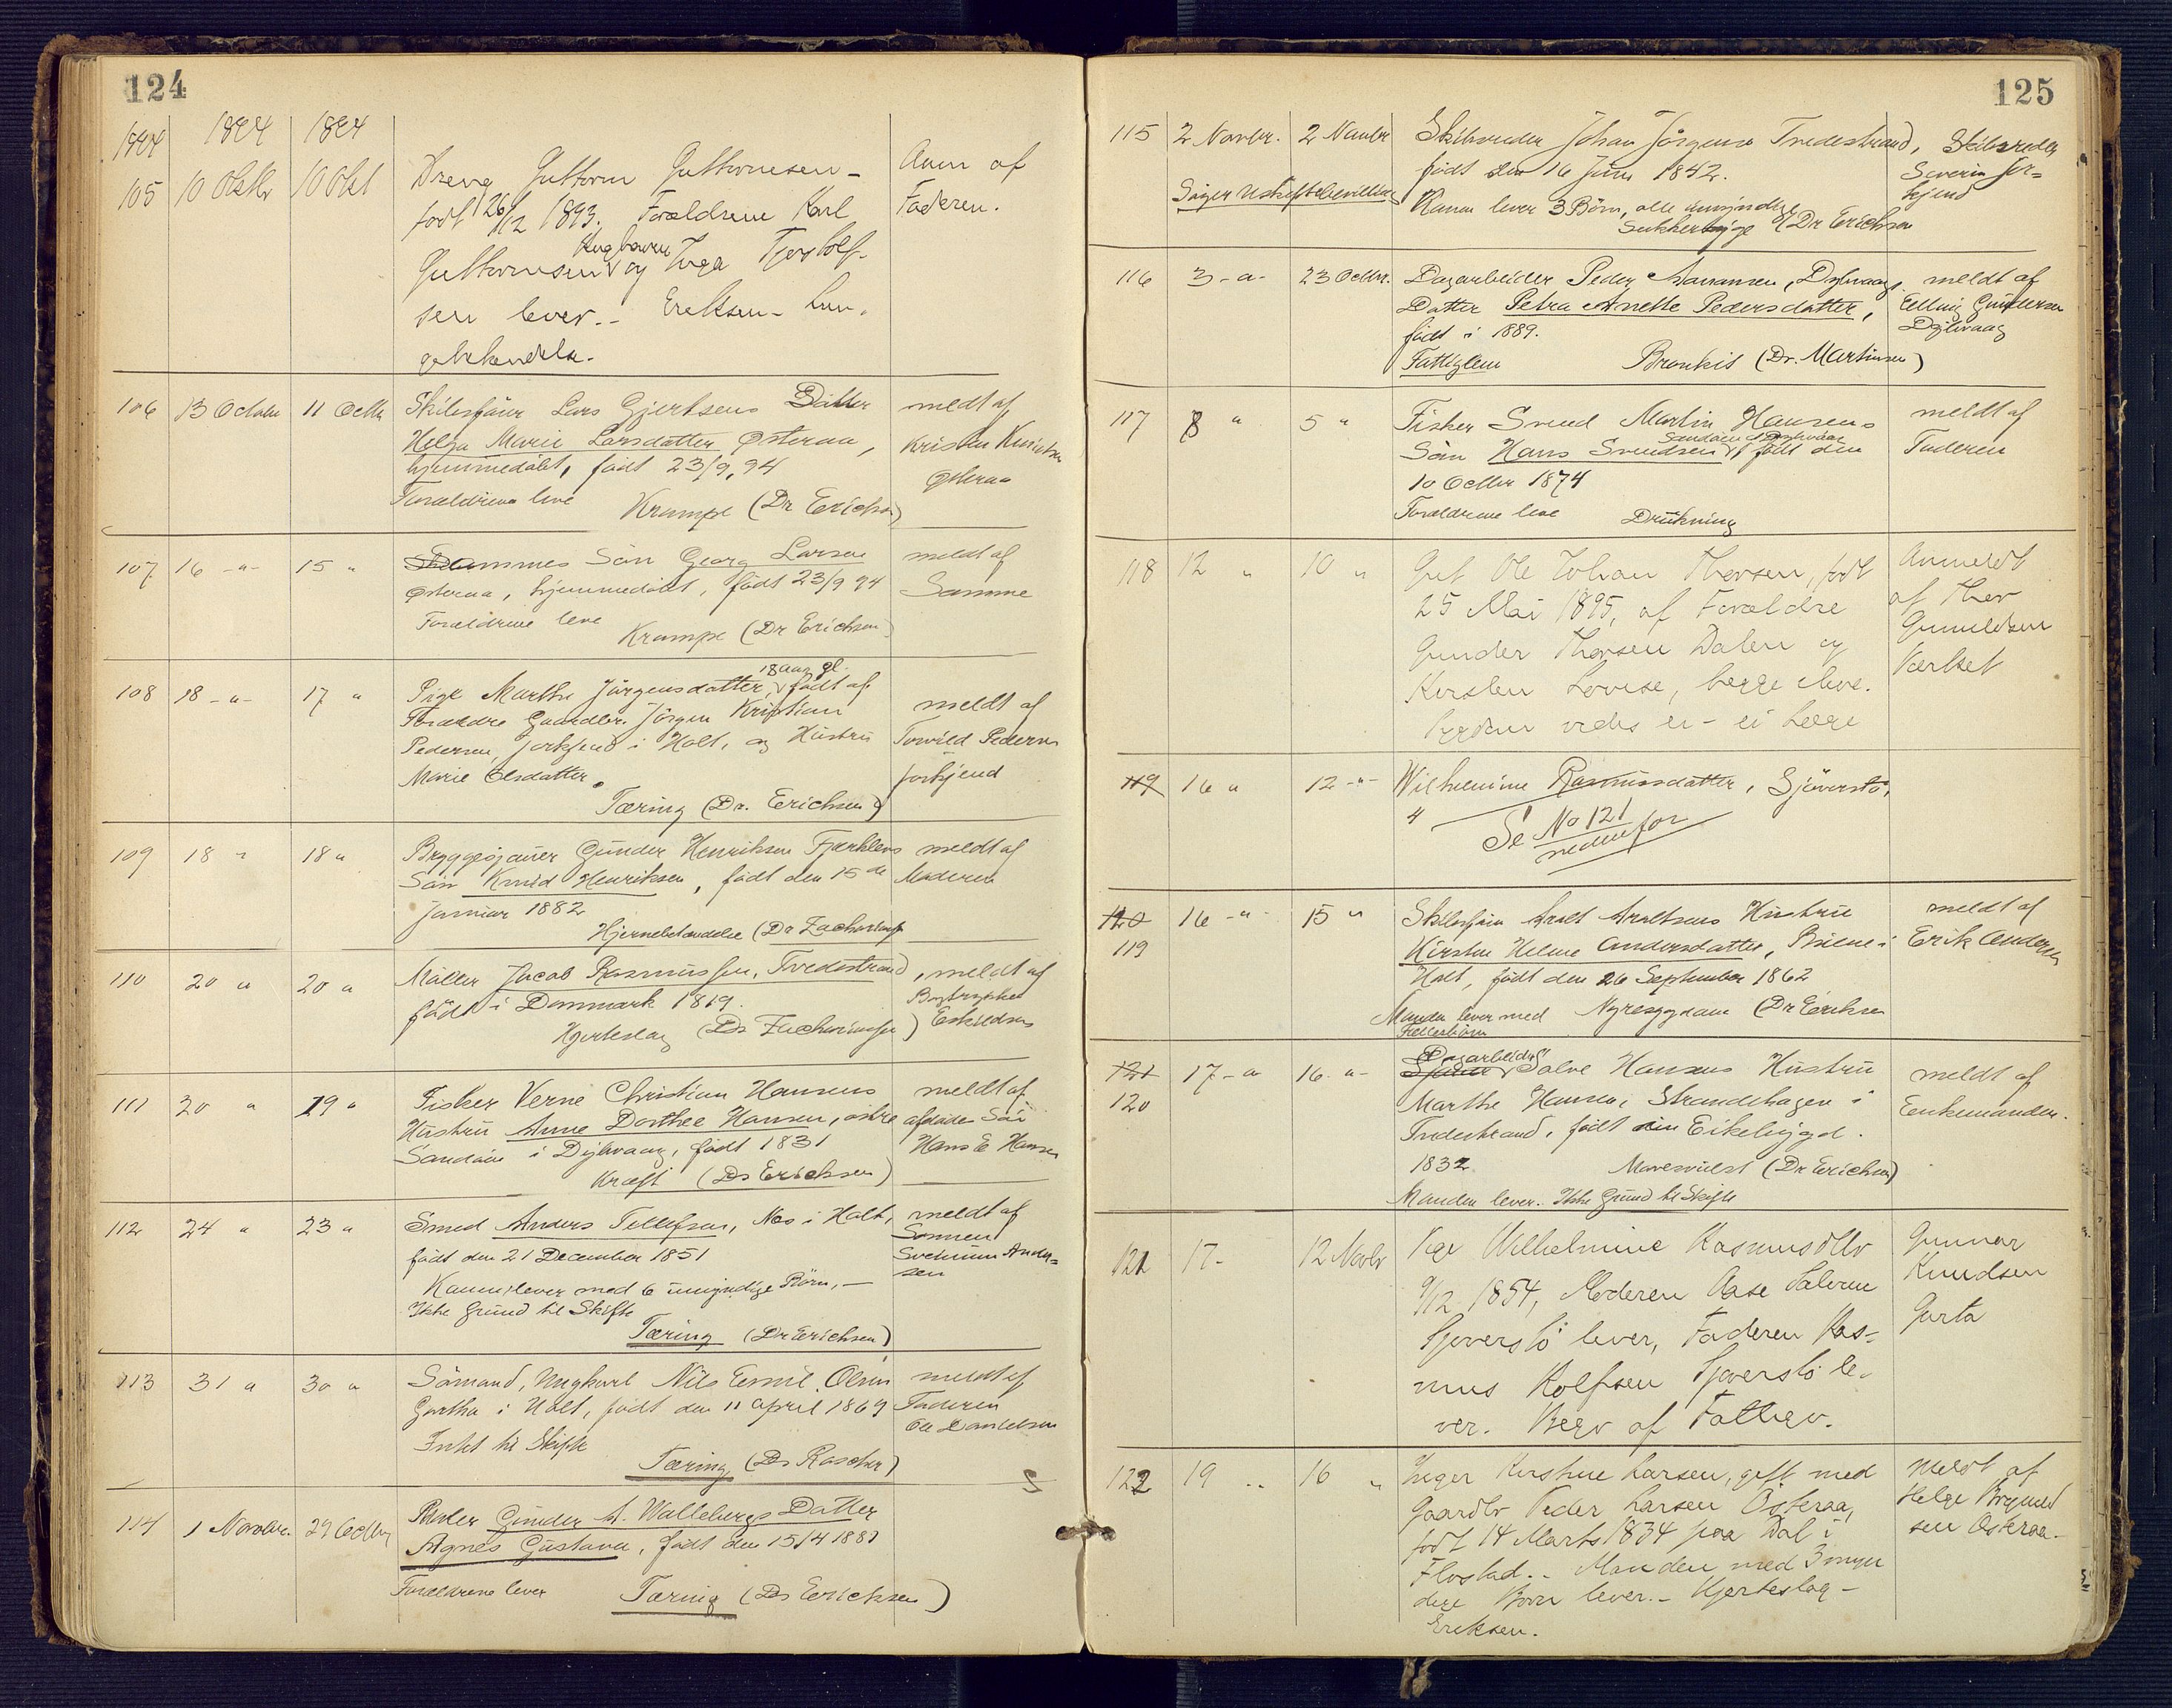 124
1894 1894 1894
105 10 Oktbr 10 Okt Dreng Guttorm Guttormsen - Anm af
født 26/12 1893. Forældrene Karl Faderen.
Guttormsen og Inga Tjostolf-
sen lever. - Eriksen - Lun-
gebetændelse.
106 13 October 11 Octbr Skibsfører Lars Gjertsens Datter meldt af
Helga Marie Larsdatter Østeraa, Kristen
hjemmedøbt, født 23/9, 94 Østeraa
Forældrene leve Krampe (Dr Erichsen)
107 16 -"- 15 " Sammes Søn Georg Larsen meldt af
Østeraa, hjemmedøbt, født 23/9 94 Samme
Forældrene leve Krampe (Dr Erichsen)
18 aar gl.
108 18 -"- 17 " Pige Marthe Jørgensdatter, født af
Forældre Gaardbr. Jørgen Kristian meldt af
Pedersen, i Holt, og Hustru Torvild Pedersen
Marie Olsdatter.
Tæring (Dr. Erichsen)
109 18 " 18 " Bryggesjauer Gunder Henriksen meldt af
Søn Knud Henriksen, født den 15de Moderen
Januar 1882
Hjernebetændelse (Dr Zachariassen
110 20 " 20 " Møller Jacob Rasmussen, Tvedestrand, meldt af
født i Danmark 1819.
Hjerteslag (Dr Zachariassen) Eskildsen
111 20 " 19 " Fisker Verne Christian Hansens meldt af
Hustru Anne Dorthee Hansen, østre afdødes Søn
Sandøen i Dybvaag, født 1831 Hans E Hansen
Kræft (Dr Erichsen)
112 24 " 23 " Smed Anders Tellefsen, Næs i Holt, meldt af
født den 21 December 1851 Sønnen
Konen lever med 6 umyndige Børn, -
Ikke Grund til Skifte
Tæring (Dr Erichsen)
113 31 " 30 " Sømand, Ungkarl Nils Emil Olsen meldt af
Gjertha i Holt, født den 11 April 1869 Faderen
Intet til Skifte Ole Danielsen
Tæring (Dr Rascher)
114 1 Novbr. 29 Octbr Gunder A. Wallebergs Datter
Agnes Gustava, født den 15/4 1881
Forældrene lever Tæring (Dr Erichsen)
125
115 2 Novbr. 2 Novbr Skibsreder Johan Jørgensen Tvedestrand, Skibsreder
født den 16 Juni 1842. Severin
Konen lever 3 Børn, alle umyndige
Sukkersyge Dr Erichsen
116 3 -"- 23 Octbr. Dagarbeider Peder Aanonsen, Dybvaags meldt af
Datter Petra Anette Pedersdatter, Elling Gundersen
født i 1889. Dybvaag
Fattiglem Bronkit (Dr. Martinsen)
117 8 " 5 " Fisker Svend Martin Hansens meldt af
Sandøen i Dybvaag
Søn Hans Svendsen, født den Faderen
10 Octbr 1874
Forældrene leve Drukning
118 12 " 10 " Gut Ole Johan Thorsen, født Anmeldt
25 Mai 1895, af Forældre af Thor
Gunder Thorsen Dalen og Gunuldsen
Kirsten Lovise, begge leve. Værket
Sygdom vides ei - ei Læge
119 16 " 12 -"- Wilhelmine Rasmusdatter, Sjøverstø,
Se No 121
nedenfor
120 16 -"- 15 " Skibsfører Aralt Araltsens Hustru meldt af
119 Kirstine Helene Andersdatter, i Erik Andersen
Holt, født den 26 September 1862
Manden lever med Nyresygdom (Dr Erichsen
Fællesbørn
Dagarbeider
121 17 -" 16 -"- Salve Hansens Hustru meldt af
120 Marthe Hansen, Strandehagen i Enkemanden.
Tvedestrand, født i Eikebygd.
1832 Mavesvulst (Dr Erichsen)
Manden lever. Ikke Grund til Skifte
121 17 - 12 Novbr Pige Wilhelmine Rasmusdtr Gunnar
9/12 1854, Moderen Aase Knudsen
Sjøverstø lever, Faderen Ras- Gjerta
mus Rolfsen Sjøverstø le-
ver. Begr af Fattigv.
122 19 " 16 " Inger Kirstine Larsen, gift med Meldt af
Gaardbr Peder Larsen Østeraa, Helge
født 14 Marts 1834 paa Dal i sen Østeraa.
Flostad. - Manden med 3 myn
dige Børn lever. - Hjerteslag -
Eriksen.